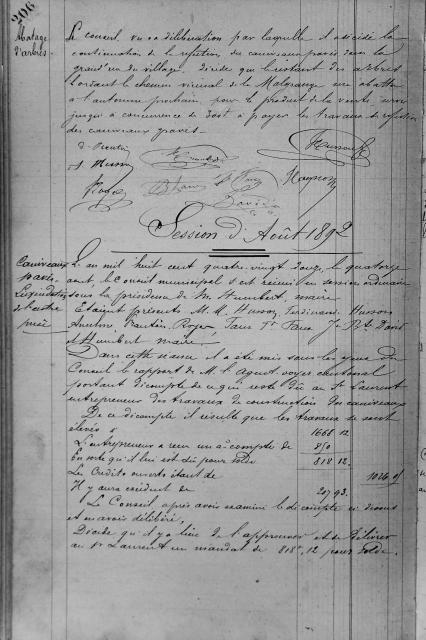 206
Abatage
d'arbres
Le conseil, vu sa délibération par laquelle il a décidé la
continuation de la réfection des caniveaux pavés dans la
grand'rue du village, décide que le restant des arbres
bordant le chemin vicinal de la Malgrange sera abattu
à l'automne prochain, pour le produit de la vente, servir
jusqu'à concurrence de à payer les travaux de réfection
des caniveaux pavés.
Session d'Août 1892
Caniveaux
pavés
Liquidation
de l'entre
prise
L'an mil huit cent quatre-vingt douze, le quatorze
août, le Conseil municipal s'est réuni en session ordinaire
sous la présidence de M. Humbert, maire
Étaient présents M. M. Husson Ferdinand, Husson
Anselme, Royer,
et Humbert maire.
Dans cette séance il a été mis sous les yeux du
Conseil le rapport de M. l'Agent-voyer cantonal
portant décompte de ce qui reste dû au Sr Laurent
entrepreneur des travaux de construction des caniveaux
De ce décompte il résulte que les travaux se sont
élevés à 1668 12
L'entrepreneur a reçu un acompte de 850
En sorte qu'il lui est dû pour solde 818 12
Les Crédits ouverts étant de 1026 05
Il y aura excédent de 207 93.
Le Conseil, après avoir examiné le décompte ci-dessus
et en avoir délibéré,
Décide qu'il y a lieu de l'approuver et de délivrer
au Sr Laurent un mandat de 818f,12 pour solde.